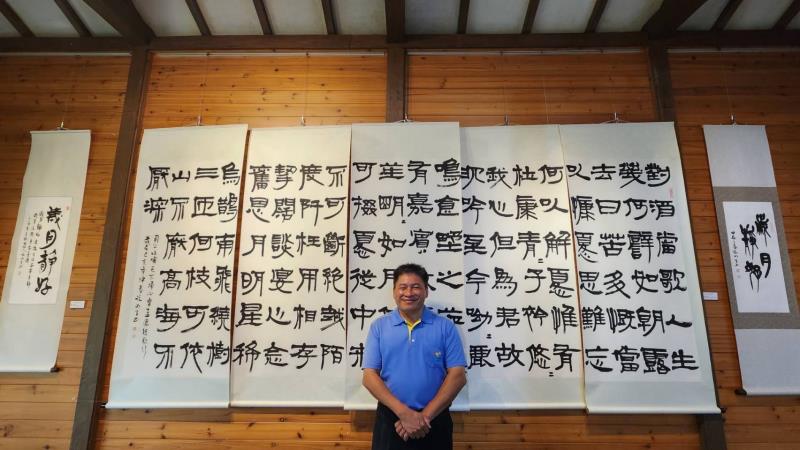 對酒當歌人生
幾何譬如朝露
去日苦多慨當
以慷憂思難忘
何以解憂惟有
杜康青〻子衿悠〻
我心但為君故
沉吟至今呦〻鹿
鳴食埜之苹
有嘉賓
笙明〻如月
可掇憂從中來
不可斷絕越陌
度阡枉用相存
契闊談宴心念
舊恩月明星稀
烏鵲南飛繞樹
三匝何枝可依
山不厭高海不
厭深
歲月靜好
歲月靜好